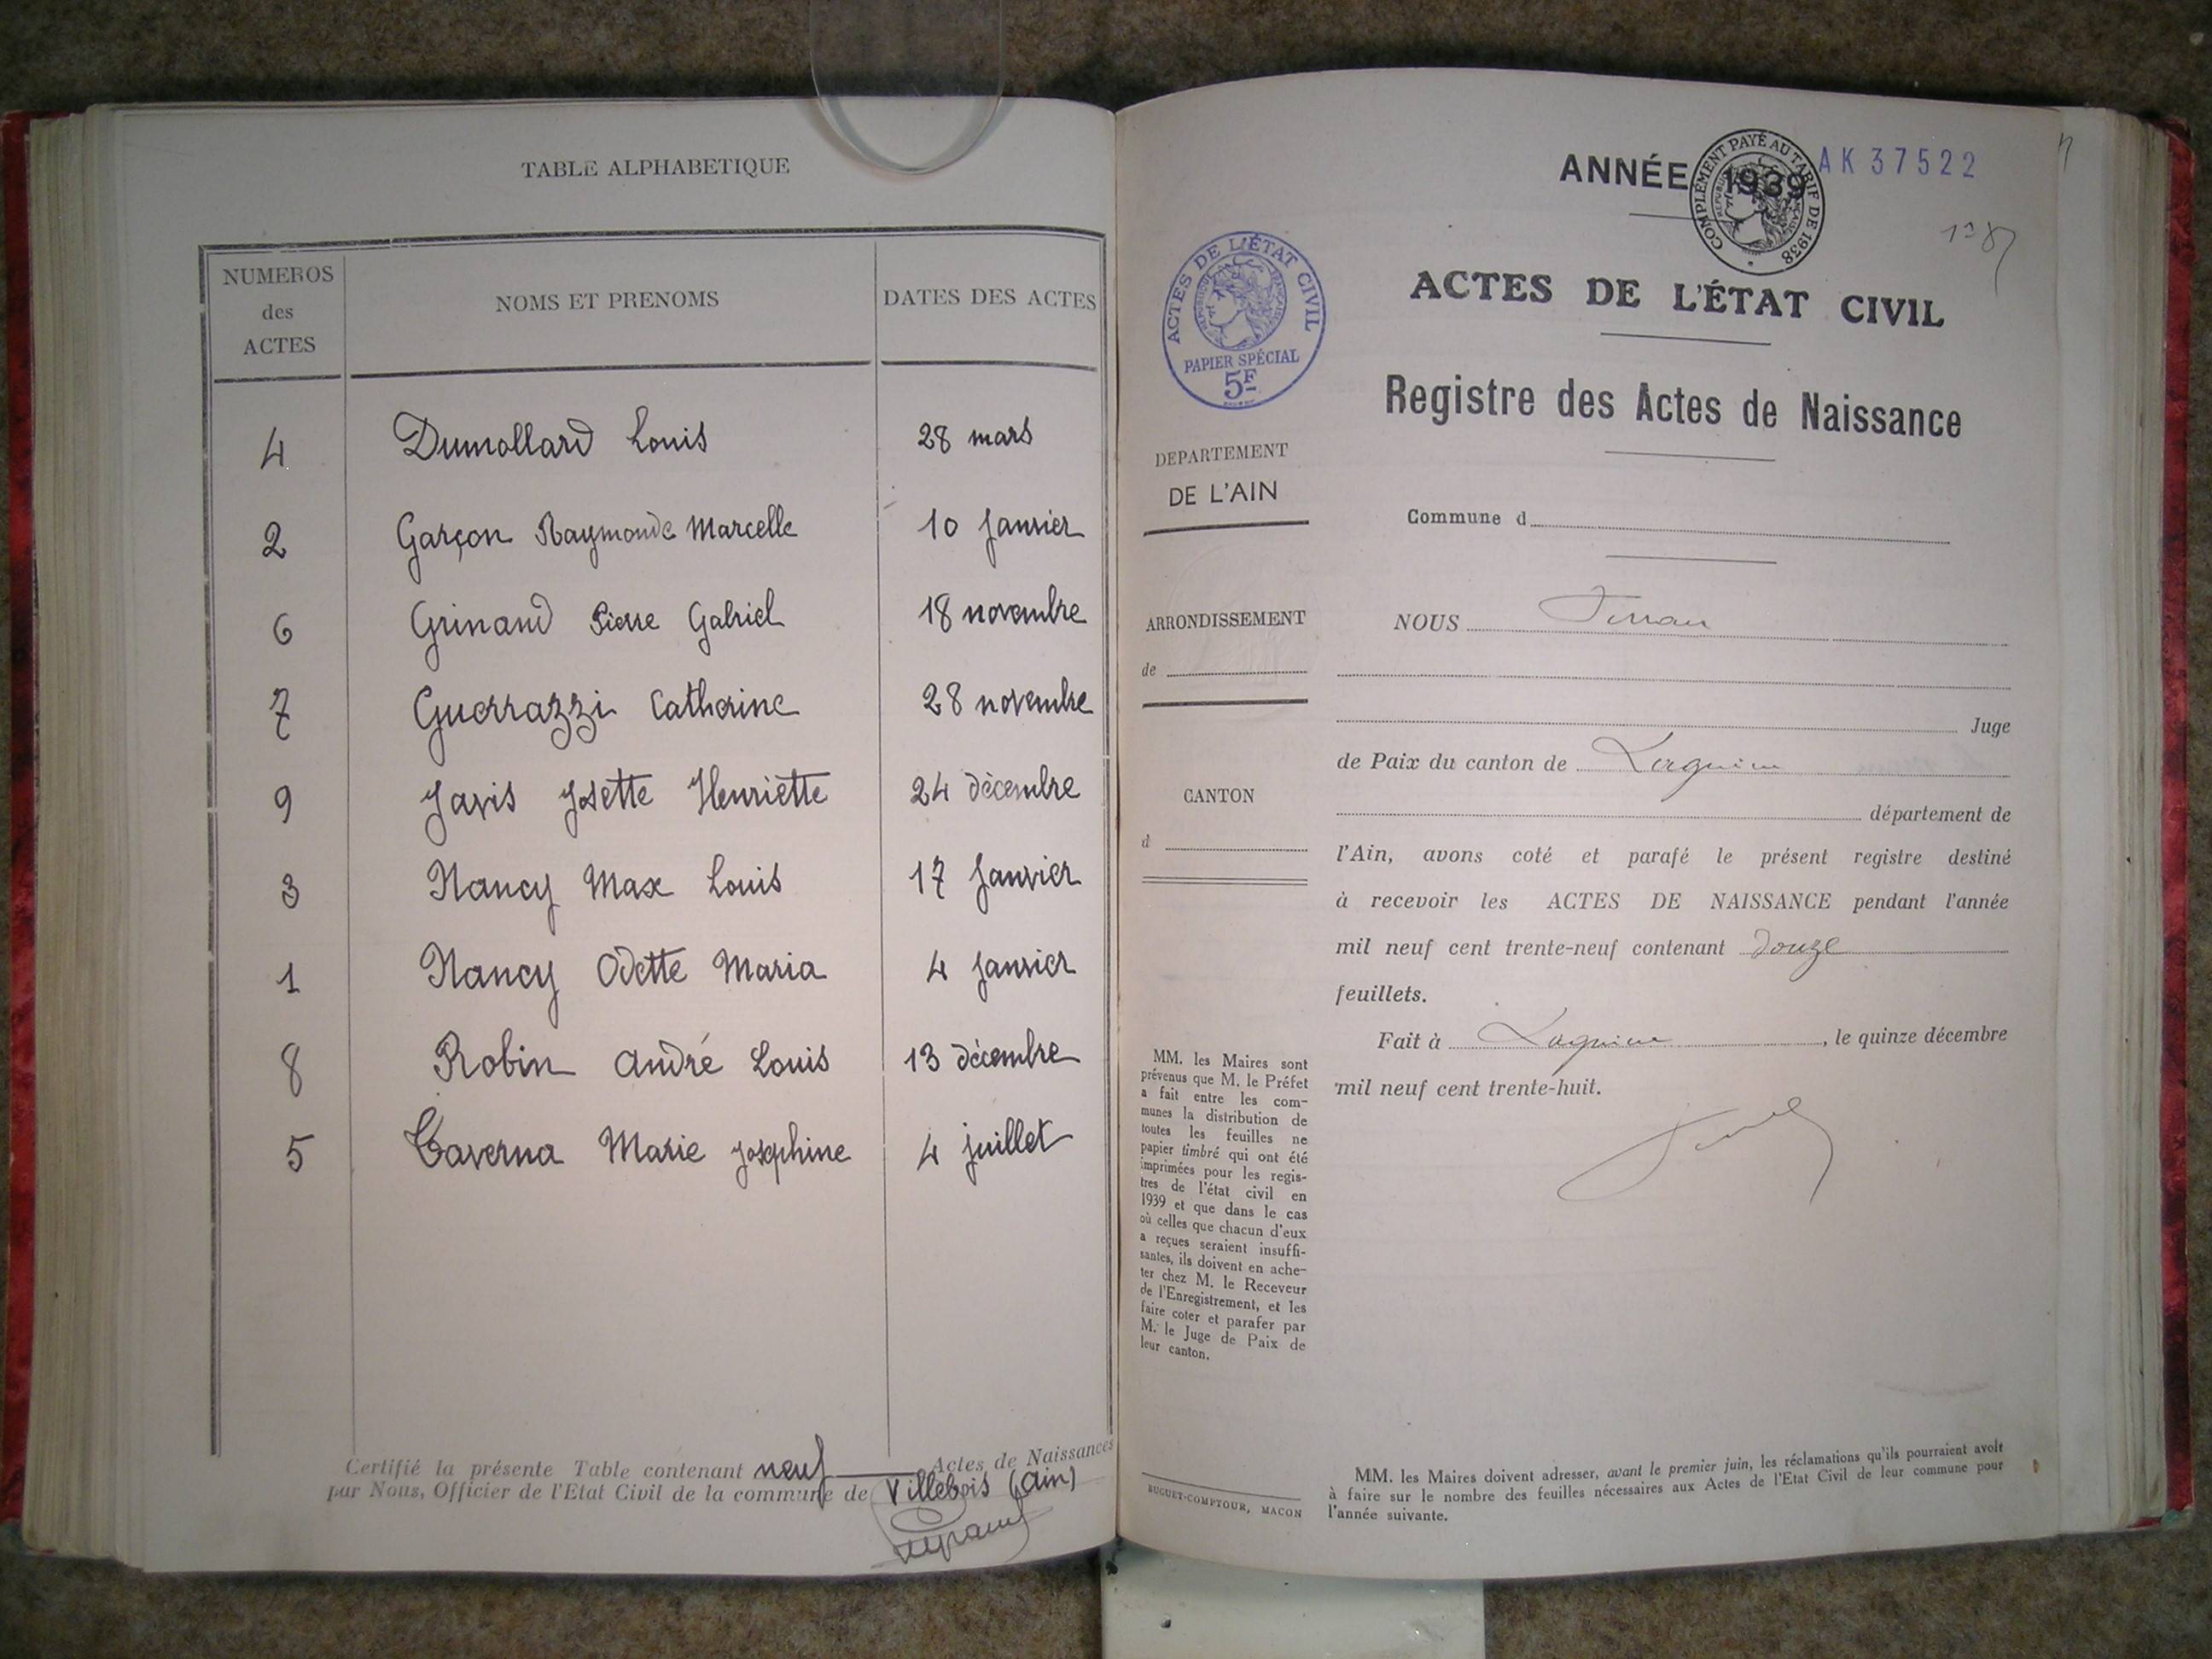 TABLE ALPHABETIQUE
NUMEROS des ACTES
NOMS ET PRENOMS
DATES DES ACTES
4 Dumollard Louis 28 mars
2 Garçon Raymonde Marcelle 10 Janvier
6 Grinand Pierre Gabriel 18 novembre
7 Guerrazzi Catherine 28 novembre
9 Javis Josette Henriette 24 décembre
3 Nancy Max Louis 17 Janvier
1 Nancy Odette Maria 4 Janvier
8 Robin André Louis 13 décembre
5 Taverna Marie Joséphine 4 juillet
Certifié la présente Table contenant neuf Actes de Naissances
par Nous, Officier de l'Etat Civil de la commune de Villebois (Ain)
ANNÉE 1939
AK 37522
COMPLÉMENT PAYÉ AU TARIF DE 1938
ACTES DE L'ÉTAT CIVIL
RÉPUBLIQUE FRANÇAISE
PAPIER SPÉCIAL
5F
ACTES DE L'ÉTAT CIVIL
Registre des Actes de Naissance
DEPARTEMENT
DE L'AIN
Commune d
ARRONDISSEMENT
de
CANTON
d
NOUS
Juge
de Paix du canton de Lagnieu
département de
l'Ain, avons coté et parafé le présent registre destiné
à recevoir les ACTES DE NAISSANCE pendant l'année
mil neuf cent trente-neuf contenant douze
feuillets.
Fait à Lagnieu, le quinze décembre
mil neuf cent trente-huit.
MM. les Maires sont
prévenus que M. le Préfet
a fait entre les com-
munes la distribution de
toutes les feuilles ne
papier timbré qui ont été
imprimées pour les regis-
tres de l'état civil en
1939 et que dans le cas
où celles que chacun d'eux
a reçues seraient insuffi-
santes, ils doivent en ache-
ter chez M. le Receveur
de l'Enregistrement, et les
faire coter et parafer par
M. le Juge de Paix de
leur canton.
BUGUET-COMPTOUR, MACON
MM. les Maires doivent adresser, avant le premier juin, les réclamations qu'ils pourraient avoir
à faire sur le nombre des feuilles nécessaires aux Actes de l'Etat Civil de leur commune pour
l'année suivante.